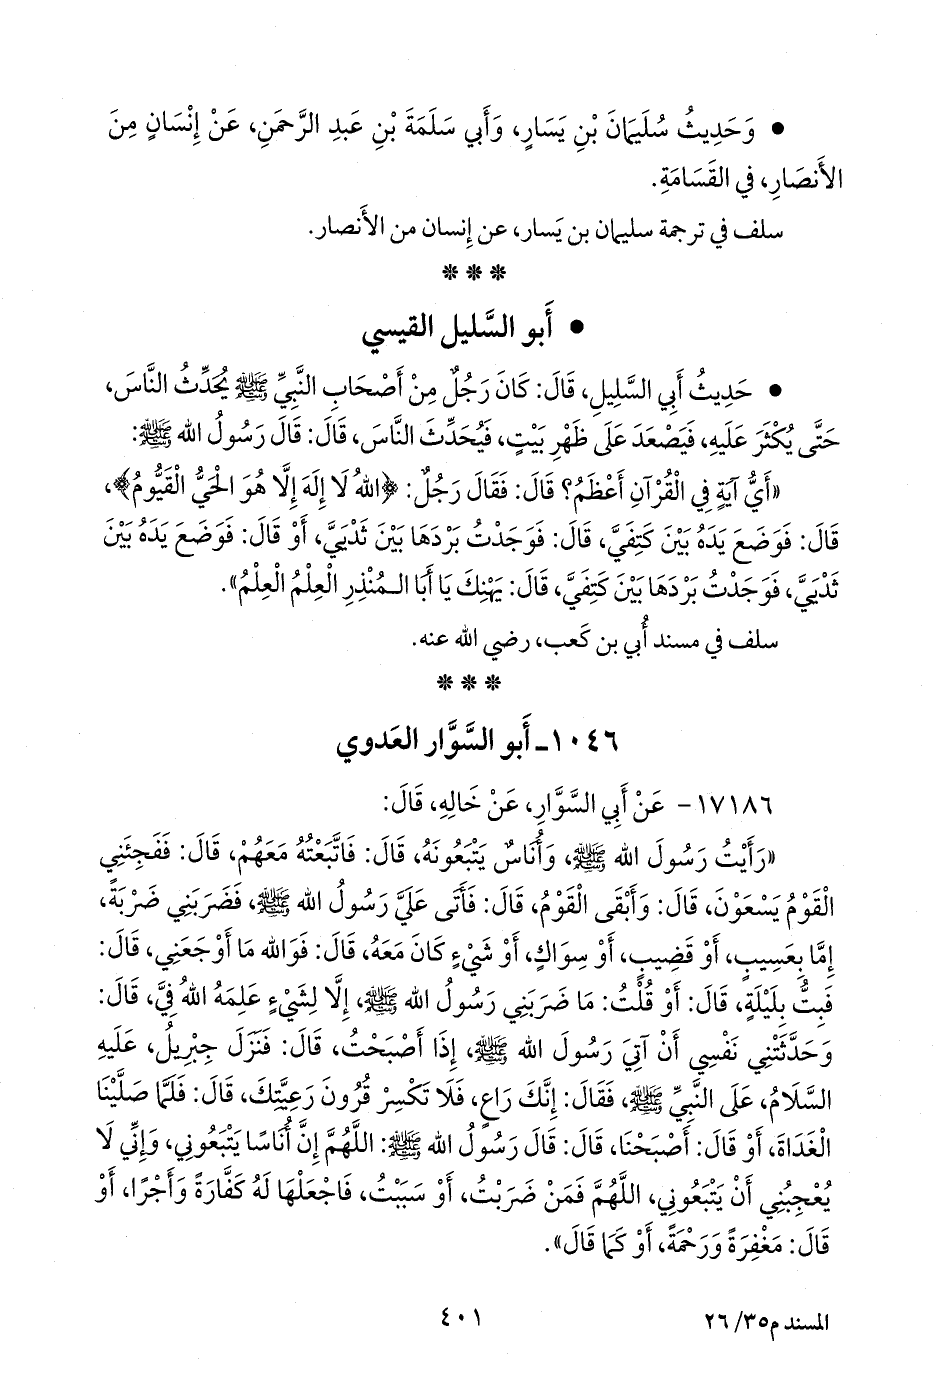 • وَحَدِيثُ سُلَيمَانَ بْنِ يَسَارٍ، وَأَبِي سَلَمَةَ بْنِ عَبدِ الرَّحمَنِ، عَنْ إِنْسَانٍ مِنَ
الأَنصَارِ، فِي القَسَامَةِ.
سلف في ترجمة سليمان بن يَسار، عن إِنسان من الأَنصار.
***
• أَبو السَّليل القيسي
• حَدِيثُ أَبِي السَّلِيلِ، قَالَ: كَانَ رَجُلٌ مِنْ أَصْحَابِ النَّبِيِّ ﷺ يُحَدِّثُ النَّاسَ،
حَتَّى يُكْثَرَ عَلَيهِ، فَيَصْعَدَ عَلَى ظَهْرِ بَيْتٍ، فَيُحَدِّثَ النَّاسَ، قَالَ: قَالَ رَسُولُ الله ﷺ:
«أَيُّ آيَةٍ فِي الْقُرْآنِ أَعْظَمُ؟ قَالَ: فَقَالَ رَجُلٌ: ﴿اللهُ لَا إِلَهَ إِلَّا هُوَ الْحَيُّ الْقَيُّومُ﴾،
قَالَ: فَوَضَعَ يَدَهُ بَيْنَ كَتِفَيَّ، قَالَ: فَوَجَدْتُ بَرْدَهَا بَيْنَ ثَدْيَيَّ، أَوْ قَالَ: فَوَضَعَ يَدَهُ بَيْنَ
ثَدْيَيَّ، فَوَجَدْتُ بَرْدَهَا بَيْنَ كَتِفَيَّ، قَالَ: يَهْنِكَ يَا أَبَا الـمُنْذِرِ الْعِلْمُ الْعِلْمُ».
سلف في مسند أُبي بن كَعب، رضي الله عنه.
***
١٠٤٦- أَبو السَّوَّار العَدوي
١٧١٨٦- عَنْ أَبِي السَّوَّارِ، عَنْ خَالِهِ، قَالَ:
«رَأَيْتُ رَسُولَ الله ﷺ، وَأُنَاسٌ يَتْبَعُونَهُ، قَالَ: فَاتَّبَعْتُهُ مَعَهُمْ، قَالَ: فَفَجِئَنِي
الْقَوْمُ يَسْعَوْنَ، قَالَ: وَأَبْقَى الْقَوْمُ، قَالَ: فَأَتَى عَلَيَّ رَسُولُ الله ﷺ، فَضَرَبَنِي ضَرْبَةً،
إِمَّا بِعَسِيبٍ، أَوْ قَضِيبٍ، أَوْ سِوَاكٍ، أَوْ شَيْءٍ كَانَ مَعَهُ، قَالَ: فَوَالله مَا أَوْجَعَنِي، قَالَ:
فَبِتُّ بِلَيْلَةٍ، قَالَ: أَوْ قُلْتُ: مَا ضَرَبَنِي رَسُولُ الله ﷺ، إِلَّا لِشَيْءٍ عَلِمَهُ اللهُ فِيَّ، قَالَ:
وَحَدَّثَتْنِي نَفْسِي أَنْ آتِيَ رَسُولَ الله ﷺ، إِذَا أَصْبَحْتُ، قَالَ: فَنَزَلَ جِبْرِيلُ، عَلَيهِ
السَّلَامُ، عَلَى النَّبِيِّ ﷺ، فَقَالَ: إِنَّكَ رَاعٍ، فَلَا تَكْسِرْ قُرُونَ رَعِيَّتِكَ، قَالَ: فَلَمَّا صَلَّيْنَا
الْغَدَاةَ، أَوْ قَالَ: أَصْبَحْنَا، قَالَ: قَالَ رَسُولُ الله ﷺ: اللَّهُمَّ إِنَّ أُنَاسًا يَتْبَعُونِي، وَإِنِّي لَا
يُعْجِبُنِي أَنْ يَتْبَعُونِي، اللَّهُمَّ فَمَنْ ضَرَبْتُ، أَوْ سَبَبْتُ، فَاجْعَلْهَا لَهُ كَفَّارَةً وَأَجْرًا، أَوْ
قَالَ: مَغْفِرَةً وَرَحْمَةً، أَوْ كَمَا قَالَ».
المسند م٣٥/ ٢٦
٤٠١